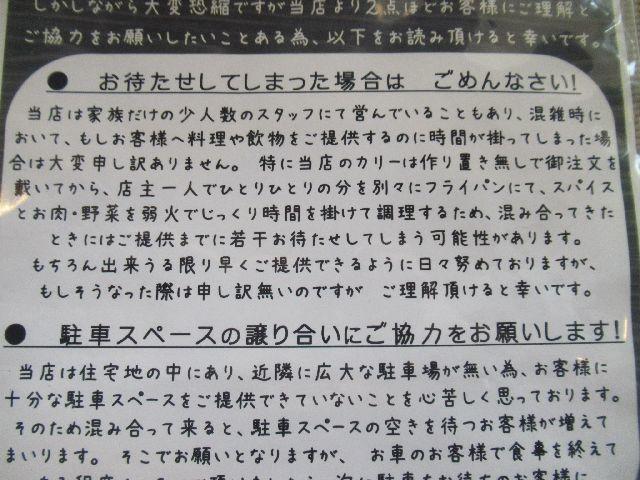 しかしながら大変恐縮ですが当店より2点ほどお客様にご理解と
ご協力をお願いしたいことある為、以下をお読み頂けると幸いです。
● お待たせしてしまった場合は ごめんなさい!
当店は家族だけの少人数のスタッフにて営んでいることもあり、混雑時に
おいて、もしお客様へ料理や飲物をご提供するのに時間が掛ってしまった場
合は大変申し訳ありません。 特に当店のカリーは作り置き無しで御注文を
戴いてから、店主一人でひとりひとりの分を別々にフライパンにて、スパイス
とお肉・野菜を弱火でじっくり時間を掛けて調理するため、混み合ってきた
ときにはご提供までに若干お待たせしてしまう可能性があります。
もちろん出来うる限り早くご提供できるように日々努めておりますが、
もしそうなった際は申し訳無いのですが ご理解頂けると幸いです。
● 駐車スペースの譲り合いにご協力をお願いします!
当店は住宅地の中にあり、近隣に広大な駐車場が無い為、お客様に
十分な駐車スペースをご提供できていないことを心苦しく思っております。
そのため混み合って来ると、駐車スペースの空きを待つお客様が増えて
まいります。 そこでお願いとなりますが、 お車のお客様で食事を終えて